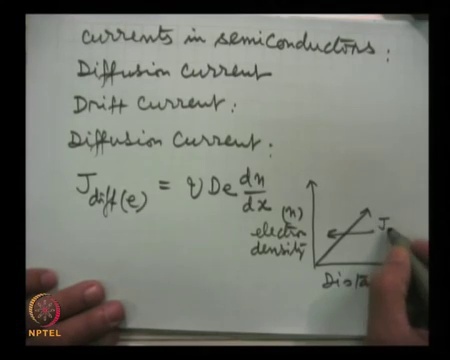 Currents in semiconductors:
Diffusion Current
Drift Current:
Diffusion Current:
J_diff(e) = q De dn/dx
(n)
electron
density
J
NPTEL